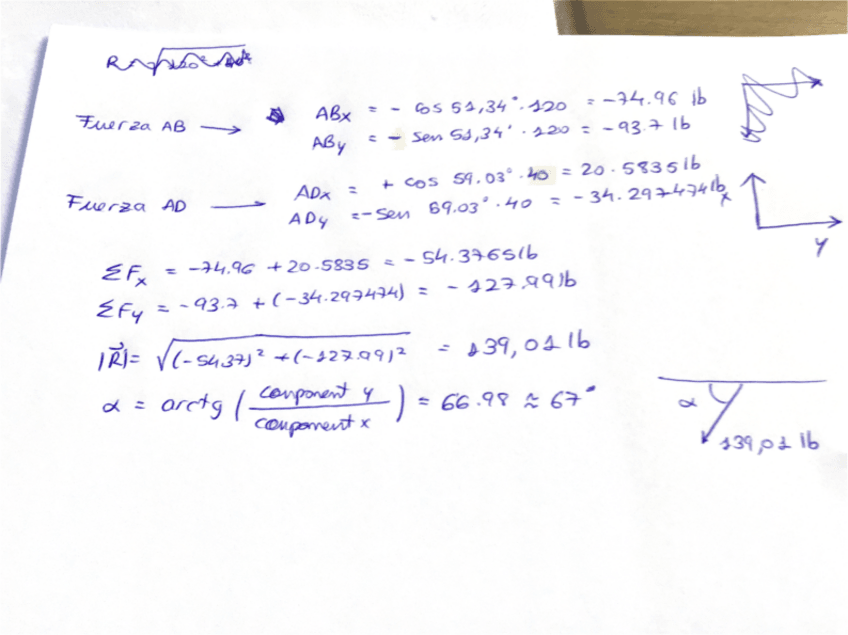 R
Fuerza AB → ABx = - cos 51,34°. 120 = -74.96 lb
ABy = - sen 51,34° . 120 = -93.7 lb
Fuerza AD → ADx = + cos 59.03° . 40 = 20.5835 lb
ADy = -sen 59.03° . 40 = -34.297474 lb
x
y
ΣFx = -74.96 + 20.5835 = -54.3765 lb
ΣFy = -93.7 + (-34.297474) = -127.99 lb
|R| = √(-54.37)² + (-127.99)² = 139,01 lb
α = arctg (component y / component x) = 66.98 ≈ 67°
α
139,01 lb